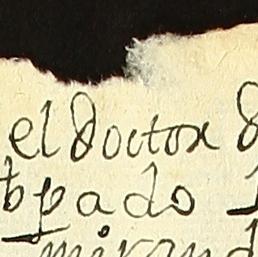 el doctor
bpado
mirand